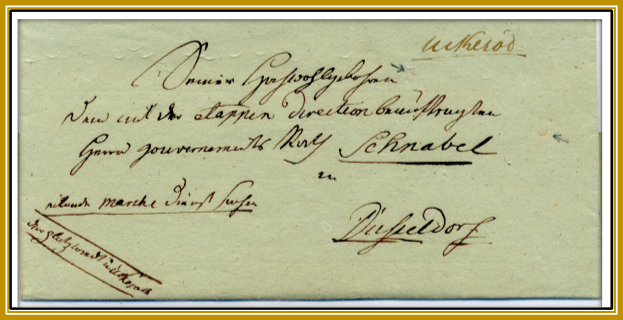 uckerod
Seiner Hochwohlgebohren
Dem mit der etappen direction beauftragten
Herrn gouvernements Rath Schnabel
zu
Düsseldorf
eilende marche Dienst Sachen
der